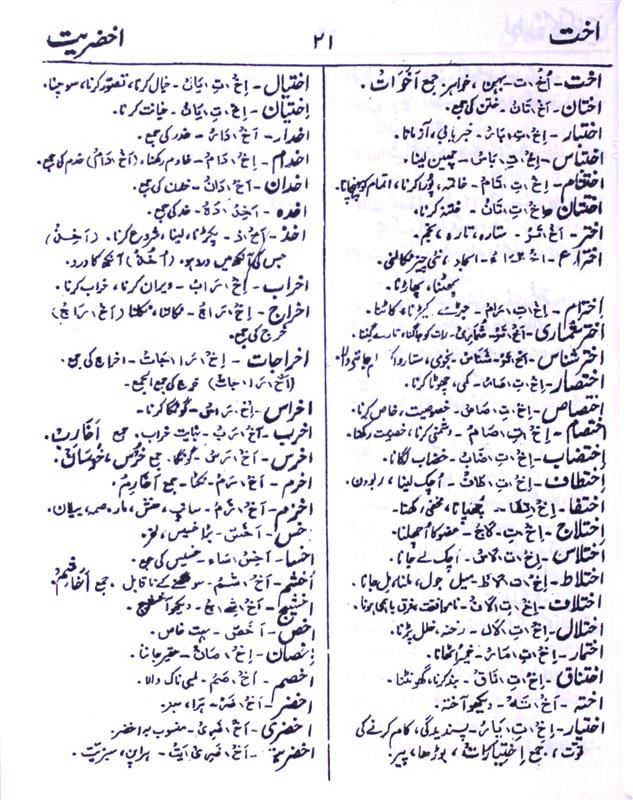 اخت
۲۱
اخضریت
اخت - اُخْ ات - بہن، خواہر جمع اَخَوَات.
اختان - اَخْ اتَانْ - ختن کی جمع.
اختبار - اِخْ اتِ ابَارْ - خبر پانی، آزمانا
اختباس - اِخْ اتِ ابَاسْ - چھین لینا.
اختتام - اِخْ اتِ اتَامْ - خاتمہ، پورا کرنا، اتمام کو پہنچانا.
اختتان - اِخْ اتِ اتَانْ - ختنہ کرنا.
اختر - اَخْ اتَرْ - ستارہ، تارہ، نجم.
اختراع - نئی چیز نکالنی.
پھٹنا، پھاڑنا.
اخترام - اِخْ اتِ ارَامْ - جڑ سے کاٹنا.
اختر شماری - اَخْ اتَرْ - شُمَارِیْ - رات کو جاگنا، تارے گننا.
اختر شناس - اَخْ اتَرْ - شَنَاسْ - نجومی،
اختصار - اِخْ اتِ اصَارْ - کمی، چھوٹا کرنا.
اختصاص - اِخْ اتِ اصَاصْ - خصوصیت، خاص کرنا.
اختصام - اِخْ اتِ اصَامْ - دشمنی کرنا، خصومت رکھنا.
اختضاب - اِخْ اتِ اضَابْ - خضاب لگانا.
اختطاف - اِخْ اتِ اطَافْ - اُچک لینا، ربودن.
اختفا - اِخْ اتِ افَا - چھپانا، مخفی رکھنا.
اختلاج - اِخْ اتِ الَاجْ - عضو کا اچھلنا.
اختلاس - اِخْ اتِ الَاسْ - اچک لے جانا.
اختلاط - اِخْ اتِ الَاطْ - میل جول، ملنا، مل جانا.
اختلاف - اِخْ اتِ الَافْ - ناموافقت، فرق باہمی ہونا.
اختلال - اِخْ اتِ الَالْ - رخنہ، خلل پڑنا.
اختمار - اِخْ اتِ امَارْ - خمیر اٹھانا.
اختناق - اِخْ اتِ انَاقْ - بند کرنا، گھونٹنا.
اختہ - اَخْ اتَہْ - دیکھو آختہ.
اختیار - اِخْ اتِ ایَارْ - پسندیدگی، کام کرنے کی
قوت، جمع اِخْتِیَارَاتْ، بوڑھا، پیر.
اختیال - اِخْ اتِ ایَالْ - خیال کرنا، تصور کرنا، سوچنا.
اختیان - اِخْ اتِ ایَانْ - خیانت کرنا.
اخدار - اَخْ ادَارْ - خدر کی جمع.
اخدام - اِخْ ادَامْ - خادم رکھنا، (اَخْ ادَامْ) خدم کی جمع.
اخدان - اَخْ ادَانْ - خدن کی جمع.
اخدہ - اَخِدْ ادَہْ - خد کی جمع.
اخذ - اَخْ اذْ - پکڑنا، لینا، شروع کرنا. (اَخِذْ)
جس کی آنکھ میں درد ہو. (اُخُذْ) آنکھ کا درد.
اخراب - اِخْ ارَابْ - ویران کرنا، خراب کرنا.
اخراج - اِخْ ارَاجْ - نکالنا، نکلنا (اَخْ ارَاجْ)
خرج کی جمع.
اخراجات - اِخْ ارَا اجَاتْ - اخراج کی جمع.
(اَخْ ارَا اجَاتْ) خرج کی جمع الجمع -
اخراس - اِخْ ارَاسْ - گونگا کرنا -
اخرب - اَخْ ارَبْ - نہایت خراب. جمع اَخَارِبْ.
اخرس - اَخْ ارَسْ - گونگا. جمع خُرْسْ، خُرْسَانْ.
اخرم - اَخْ ارَمْ - نکٹا - جمع اَخَارِمْ.
اخزم - اَخْ ازَمْ - سانپ،
اخس - اَخَسّ - بڑا خسیس،
اخسا - اَخِسْ اسَاء - خسیس کی جمع.
اخشم - اَخْ اشَمْ - سونگھنے کے ناقابل.
- دیکھو
اخص - اَخَصّ - بہت خاص.
- حقیر جاننا.
اخصم - اَخْ اصَمْ - لمبی ناک والا.
اخضر - اَخْ اضَرْ - ہرا، سبز.
اخضری - اَخْ اضَرِیْ - منسوب بہ اخضر.
اخضریت - اَخْ اضَرِیْ ایَتْ - ہراپن، سبزیت.